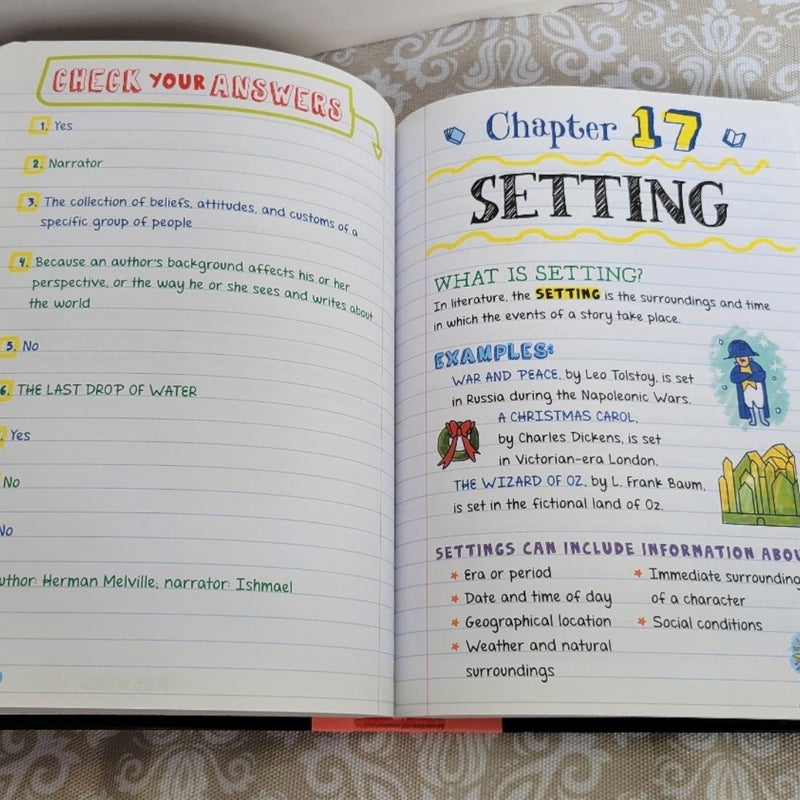 CHECK YOUR ANSWERS
1. Yes
2. Narrator
3. The collection of beliefs, attitudes, and customs of a
specific group of people
4. Because an author's background affects his or her
perspective, or the way he or she sees and writes about
the world
5. No
6. THE LAST DROP OF WATER
Yes
No
No
uthor: Herman Melville; narrator: Ishmael
Chapter 17
SETTING
WHAT IS SETTING?
In literature, the SETTING is the surroundings and time
in which the events of a story take place.
EXAMPLES:
WAR AND PEACE, by Leo Tolstoy, is set
in Russia during the Napoleonic Wars.
A CHRISTMAS CAROL,
by Charles Dickens, is set
in Victorian-era London.
THE WIZARD OF OZ, by L. Frank Baum,
is set in the fictional land of Oz.
SETTINGS CAN INCLUDE INFORMATION ABOU
Era or period
Date and time of day
Geographical location
Weather and natural
surroundings
Immediate surrounding
of a character
Social conditions